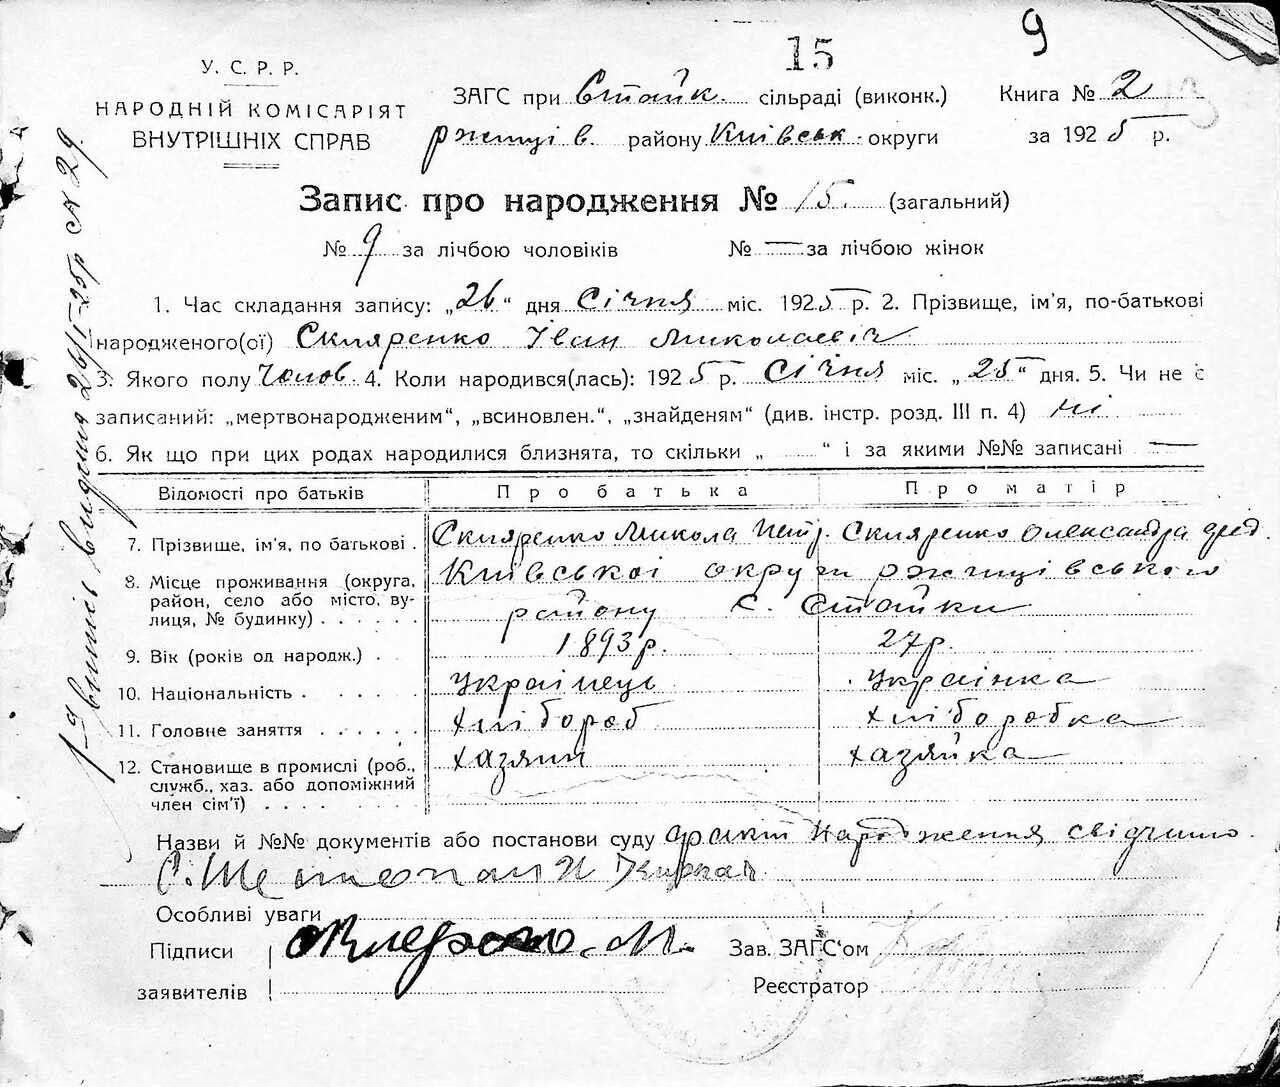 9
15
У. С. Р. Р.
НАРОДНІЙ КОМІСАРІЯТ
ВНУТРІШНІХ СПРАВ
ЗАГС при Стайк. сільраді (виконк.) Книга № 2
ржищів. району Київськ. округи за 1925 р.
Запис про народження № 15. (загальний)
№ 9 за лічбою чоловіків № — за лічбою жінок
1. Час складання запису: „26“ дня Січня міс. 1925 р. 2. Прізвище, ім'я, по-батькові
народженого(ої) Скляренко Іван Миколаевіч
3. Якого полу Чолов. 4. Коли народився(лась): 1925 р. Січня міс. „25“ дня. 5. Чи не є
записаний: „мертвонародженим“, „всиновлен.“, „знайденям“ (див. інстр. розд. III п. 4) ні
6. Як що при цих родах народилися близнята, то скільки „ “ і за якими №№ записані —
Відомості про батьків Про батька Про матір
7. Прізвище, ім'я, по батькові . Скляренко Микола Петр. Скляренко Олександра
8. Місце проживання (округа, район, село або місто, вулиця, № будинку) . . . . . . Київської округи ржищівського
району С. Стайки
9. Вік (років од народж.) . 1893р. 27р.
10. Національність . . . . . . Українець Українка
11. Головне заняття . . . . . . хлібороб хліборобка
12. Становище в промислі (роб., служб., хаз. або допоміжний член сім'ї) . . . . . . хазяин хазяйка
Назви й №№ документів або постанови суду факт народження свідчимо.
Особливі уваги
Підписи М. Зав. ЗАГС'ом
заявителів Реєстратор
витяг видано 26/I-25р № 29.